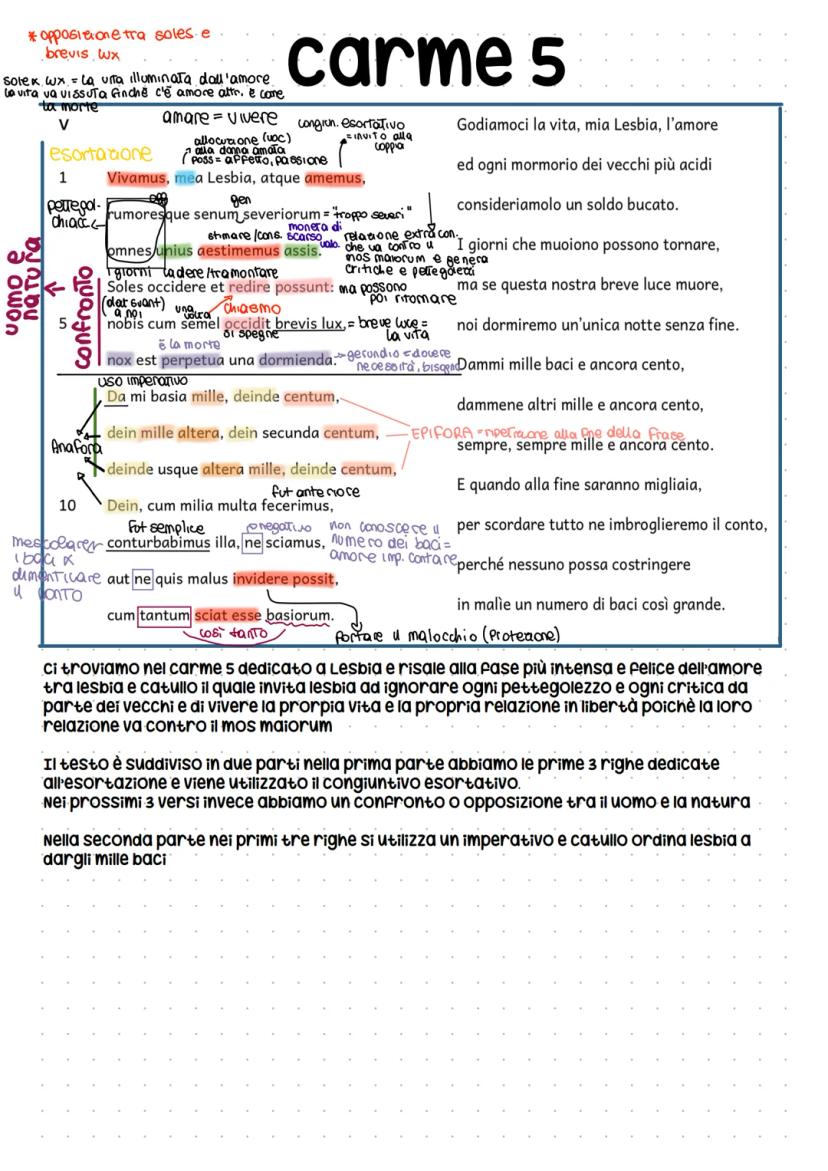 * opposizione tra soles e
brevis lux
carme 5
soles x lux = la vita illuminata dall'amore
la vita va vissuta finché c'è amore altr. è come
la morte
V
amare = vivere
congiun. esortativo
= invito alla
coppia
allocuzione (voc)
alla donna amata
poss = affetto, passione
esortazione
1 Vivamus, mea Lesbia, atque amemus,
pettegol-
chiacc.
gen
rumoresque senum severiorum = "troppo severi"
stimare/cons.
moneta di
scarso
valo.
omnes unius aestimemus assis.
relazione extracon.
che va contro il
mos maiorum e genera
critiche e pettegolezzi
uomo e
natura
confronto
i giorni
cadere/tramontare
Soles occidere et redire possunt: ma possono
poi ritornare
(dat svant)
a noi
una
volta
chiasmo
5 nobis cum semel occidit brevis lux, = breve luce =
la vita
si spegne
è la morte
nox est perpetua una dormienda.
gerundio = dovere
necessità, bisogno
uso imperativo
Da mi basia mille, deinde centum,
dein mille altera, dein secunda centum,
EPIFORA = ripetizione alla fine della frase
Anafora
deinde usque altera mille, deinde centum,
fut anteriore
10 Dein, cum milia multa fecerimus,
fut semplice
negativo
non conoscere il
numero dei baci =
amore imp. contare
mescolare
i baci x
dimenticare
il conto
conturbabimus illa, ne sciamus,
aut ne quis malus invidere possit,
cum tantum sciat esse basiorum.
così tanto
portare il malocchio (Protezione)
Godiamoci la vita, mia Lesbia, l'amore
ed ogni mormorio dei vecchi più acidi
consideriamolo un soldo bucato.
I giorni che muoiono possono tornare,
ma se questa nostra breve luce muore,
noi dormiremo un'unica notte senza fine.
Dammi mille baci e ancora cento,
dammene altri mille e ancora cento,
sempre, sempre mille e ancora cento.
E quando alla fine saranno migliaia,
per scordare tutto ne imbroglieremo il conto,
perché nessuno possa costringere
in malìe un numero di baci così grande.
Ci troviamo nel carme 5 dedicato a Lesbia e risale alla fase più intensa e felice dell'amore
tra lesbia e catullo il quale invita lesbia ad ignorare ogni pettegolezzo e ogni critica da
parte dei vecchi e di vivere la prorpia vita e la propria relazione in libertà poichè la loro
relazione va contro il mos maiorum
Il testo è suddiviso in due parti nella prima parte abbiamo le prime 3 righe dedicate
all'esortazione e viene utilizzato il congiuntivo esortativo.
Nei prossimi 3 versi invece abbiamo un confronto o opposizione tra il uomo e la natura
Nella seconda parte nei primi tre righe si utilizza un imperativo e catullo ordina lesbia a
dargli mille baci